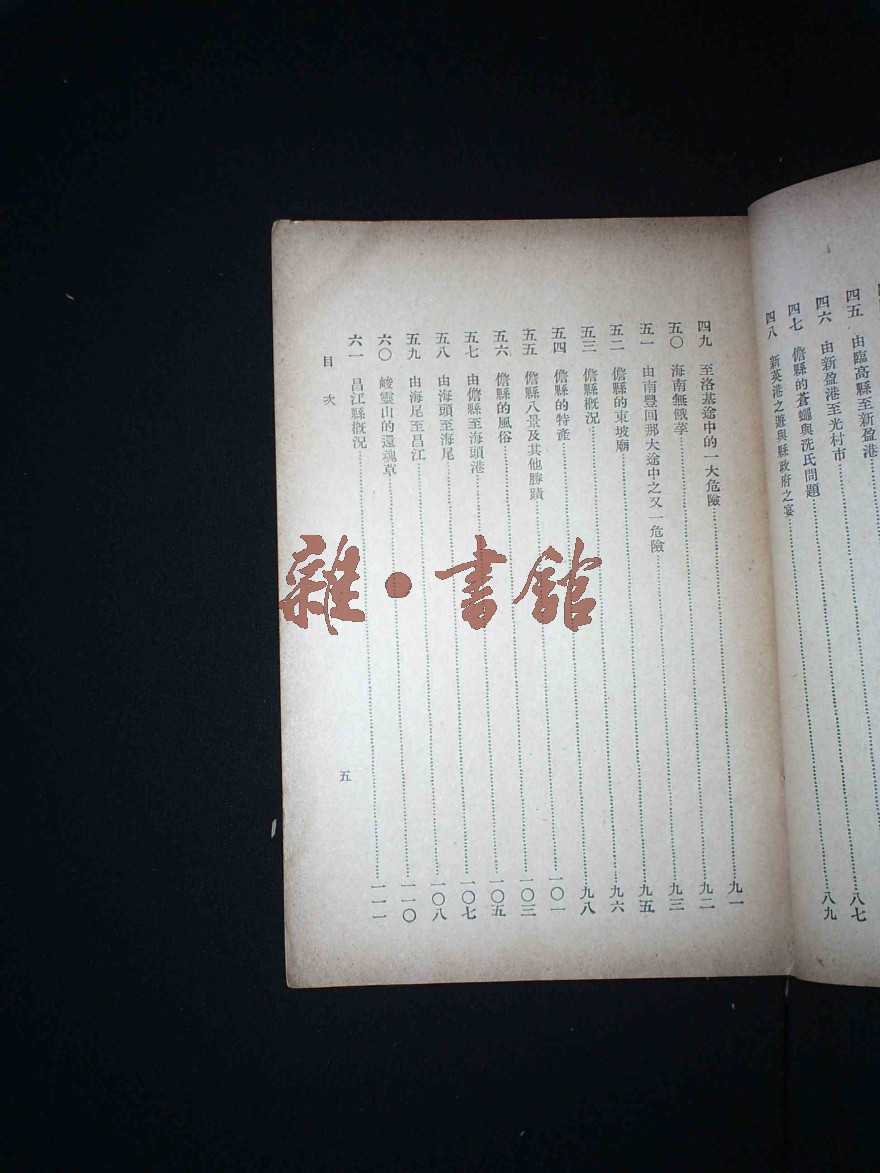 四五　由臨高縣至新盈港
四六　由新盈港至光村市
四七　儋縣的蒼蠅與洗氏問題……八七
四八　新英港之遊與縣政府之宴……八九
四九　至洛基途中的一大危險……九一
五〇　海南無餓莩……九二
五一　由南豐回那大途中之又一危險……九三
五二　儋縣的東坡廟……九五
五三　儋縣概況……九六
五四　儋縣的特產……九八
五五　儋縣八景及其他勝蹟……一〇一
五六　儋縣的風俗……一〇三
五七　由儋縣至海頭港……一〇五
五八　由海頭至海尾……一〇七
五九　由海尾至昌江……一〇八
六〇　峻靈山的還魂草……一一〇
六一　昌江縣概況……一一一
目次
五
雜·書館